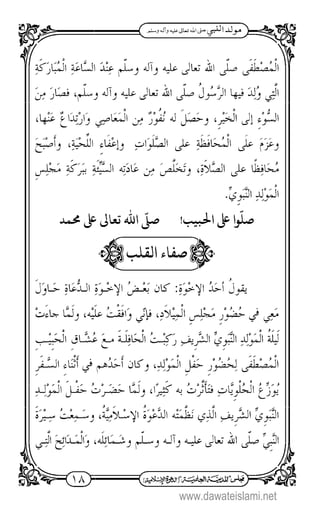 مولد النبي صلى الله تعالى عليه وآله وسلم
الْمُصْطَفَى صلّى الله تعالى عليه وآله وسلّم عِنْدَ السَّاعَةِ الْمُبَارَكَةِ
الَّتِي وُلِدَ فيها الرَّسُولُ صلّى الله تعالى عليه وآله وسلّم، فصَارَ مِنَ
السُّوْءِ إلى الْخَيْرِ، وحَصَلَ له نُفُوْرٌ مِنَ الْمَعَاصِي وَارْتِدَاعٌ عنْها،
وعَزَمَ علَى الْمُحَافَظَةِ على الصَّلَوَاتِ وإعْفَاءِ اللِّحْيَةِ، وأَصْبَحَ
مُحَافِظًا على الصَّلَاةِ، وتَخَلَّصَ مِنَ عَادَاتِهِ السَّيِّئَةِ بِبَرَكَةِ مَجْلِسِ
الْمَوْلِدِ النَّبَوِيِّ.
صلّوا على الحبيب! صلّى الله تعالى على محمد
صفاء القلب
يقولُ أَحَدُ الإِخْوَةِ: كان بَعْضُ الإِخْوَةِ الدُّعَاةِ حَاوَلَ
مَعِي في حُضُوْرِ مَجْلِسِ الْمِيْلَادِ، فإنّي وَافَقْتُ علَيْه، ولَمَّا جاءَتْ
لَيْلَةُ الْمَوْلِدِ النَّبَوِيِّ الشَّرِيفِ رَكِبْتُ الْحَافِلَةَ مع عُشَّاقِ الْحَبِيْبِ
الْمُصْطَفَى لِحُضُوْرِ حَفْلِ الْمَوْلِدِ، وكان أَحَدُهُم في أَثْنَاءِ السَّفَرِ
يُوَزِّعُ الْحُلْوِيَّاتِ فتَأَثَّرْتُ به كَثِيْرًا، ولَمَّا حَضَرْتُ حَفْلَ الْمَوْلِدِ
النَّبَوِيِّ الشَّرِيفِ الَّذِي نَظَّمَتْهُ الدَّعْوَةُ الإِسْلَامِيَّةُ، وسَمِعْتُ سِيْرَةَ
النَّبِيِّ صلّى الله تعالى عليه وآله وسلّم وشَمَائِلَه، والْمَدَائِحَ الَّتِي
١٨
www.dawateislami.net